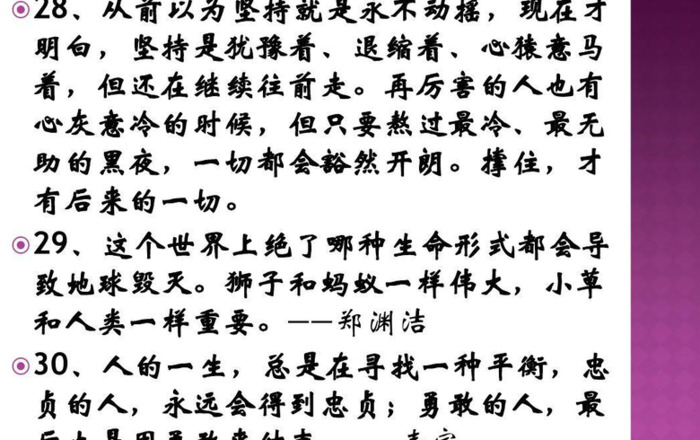 28、从前以为坚持就是永不动摇，现在才
明白，坚持是犹豫着、退缩着、心猿意马
着，但还在继续往前走。再厉害的人也有
心灰意冷的时候，但只要熬过最冷、最无
助的黑夜，一切都会豁然开朗。撑住，才
有后来的一切。
29、这个世界上绝了哪种生命形式都会导
致地球毁灭。狮子和蚂蚁一样伟大，小草
和人类一样重要。——郑渊洁
30、人的一生，总是在寻找一种平衡，忠
贞的人，永远会得到忠贞；勇敢的人，最